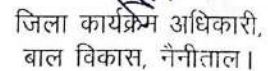 जिला कार्यक्रम अधिकारी,
बाल विकास, नैनीताल।